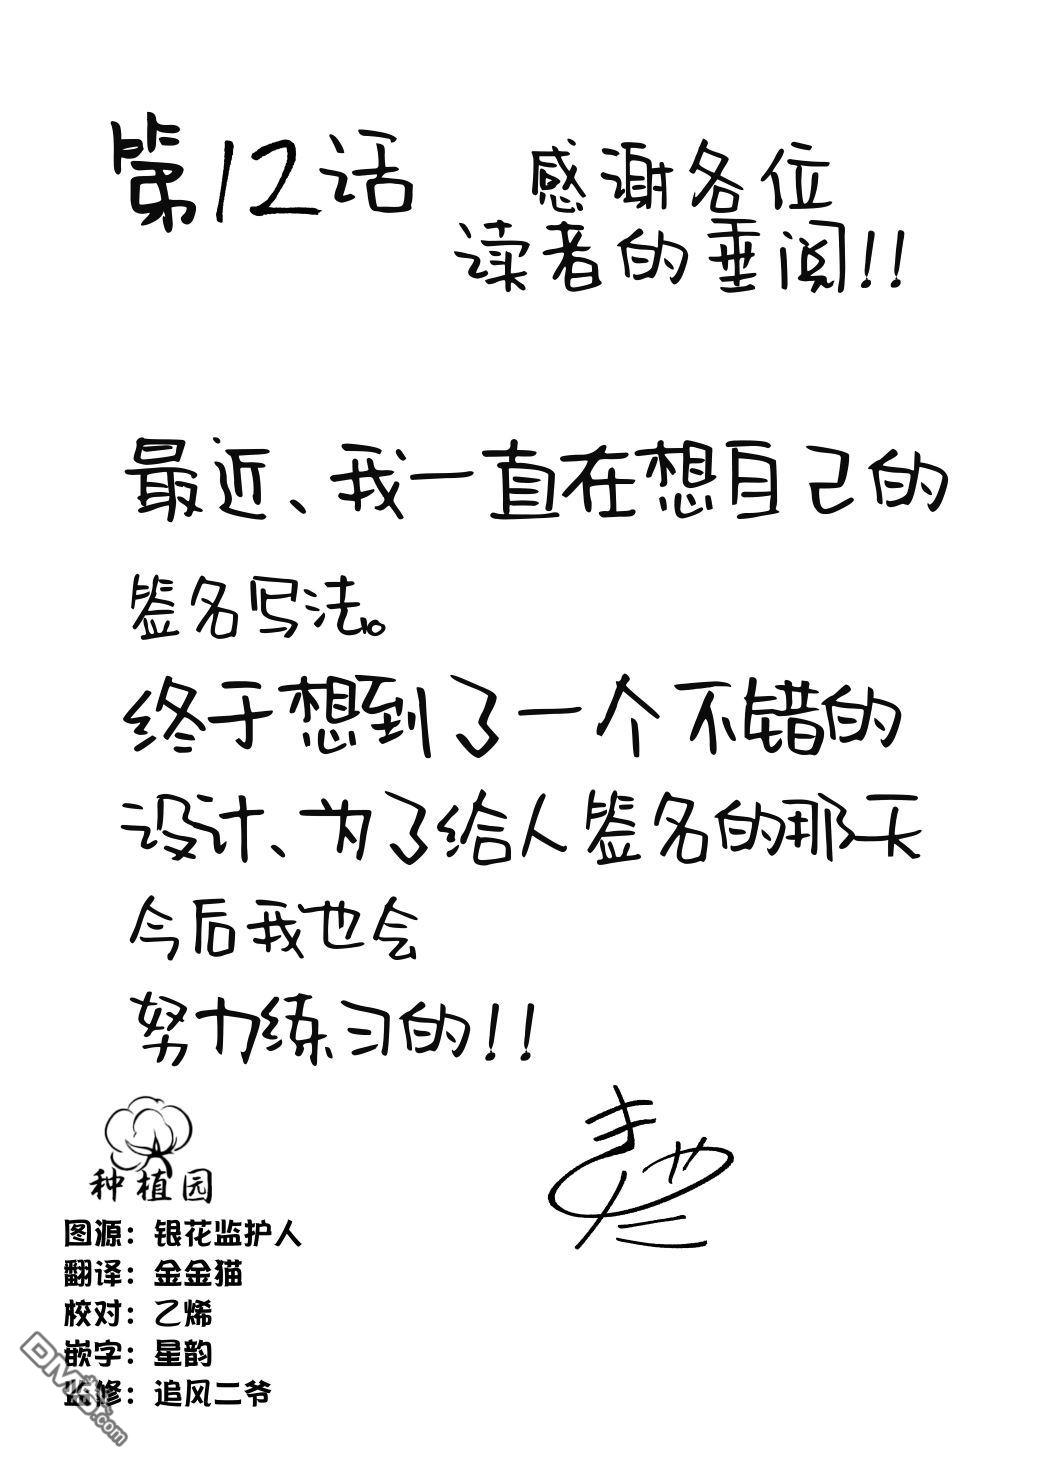 第12话
感谢各位
读者的垂阅!!
最近、我一直在想自己的
签名写法。
终于想到了一个不错的
设计、为了给人签名的那天
今后我也会
努力练习的!!
种植园
图源：银花监护人
翻译：金金猫
校对：乙烯
嵌字：星韵
监修：追风二爷
DM5.com